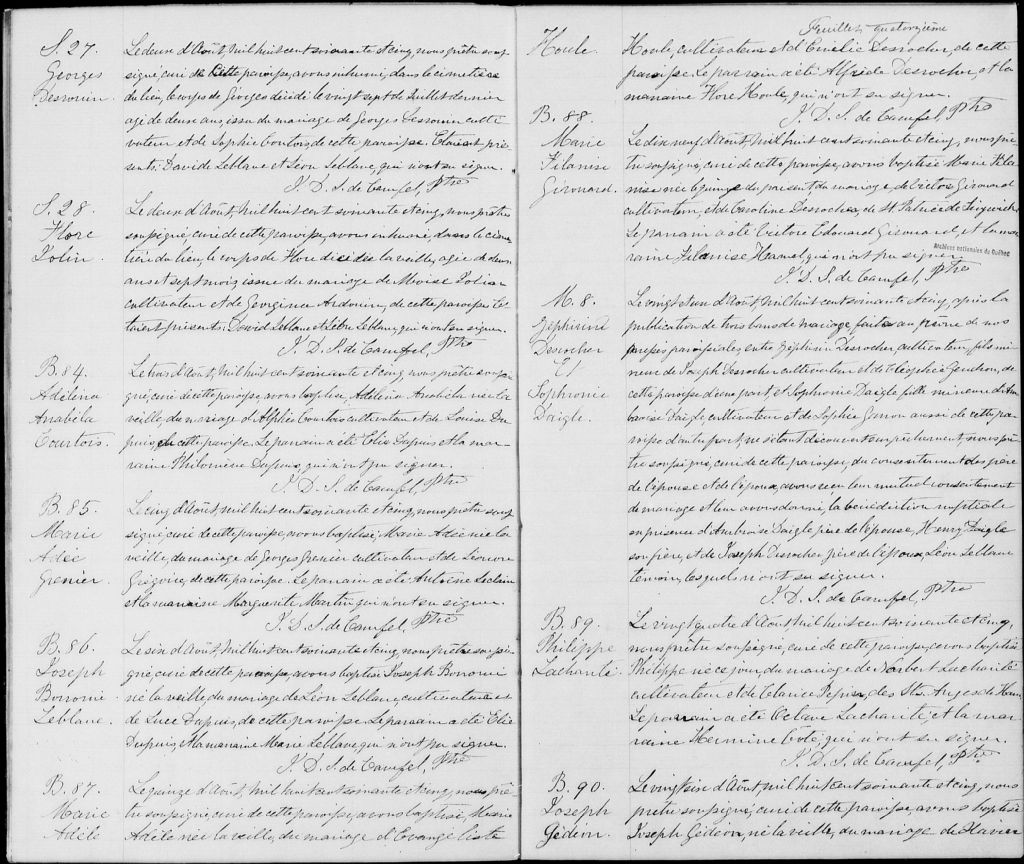 S. 27.
Georges
Desrouin.
Le deux d'Août, Mil huit cent soixante et cinq, nous prêtre sous-
signé, curé de Cette paroisse, avons inhumé, dans le cimetière
du lieu, le corps de Georges décédé le vingt sept de Juillet dernier
agé de deux ans, issu du mariage de Georges culti-
vateur et de Sophie Courtois, de cette paroisse. Etaient pré-
sents, David Leblanc et Léon Leblanc, qui n'ont su signer.
J. D. S. de Ptre
S. 28.
Flore
Le deux d'Août, Mil huit cent soixante et cinq, nous prêtre
soussigné, curé de cette paroisse, avons inhumé, dans le cime-
tière du lieu, le corps de Flore décédée la veille, agée de deux
ans et sept mois, issue du mariage de Moïse
cultivateur et de Georgina Ardouin, de cette paroisse. E-
taient présents, David Leblanc et Léon Leblanc, qui n'ont su signer.
J. D. S. de Ptre
B. 84.
Adélina
Anabéla
Courtois.
Le trois d'Août, Mil huit cent soixante et cinq, nous prêtre soussi-
gné, curé de cette paroisse, avons baptisé, Adélina Anabéla née la
veille, du mariage d'Alphée Courtois cultivateur et de Louise Du-
puis, de cette paroisse. Le parrain a été Elie Dupuis et la mar-
raine Philomène Dupuis, qui n'ont pu signer.
J. D. S. de Ptre
B. 85.
Marie
Adée
Grenier.
Le cinq d'Août, Mil huit cent soixante et cinq, nous prêtre sous-
signé, curé de cette paroisse, avons baptisé, Marie Adée née la
veille, du mariage de Georges Grenier cultivateur et de Léonore
Grégoire, de cette paroisse. Le parrain a été Antoine Leclair
et la marraine Marguerite Martin qui n'ont su signer.
J. D. S. de Ptre
B. 86.
Joseph
Bonomé
Leblanc.
Le six d'Août, Mil huit cent soixante et cinq, nous prêtre soussi-
gné, curé de cette paroisse, avons baptisé Joseph Bonomé
né la veille, du mariage de Léon Leblanc, cultivateur et
de Luce Dupuis, de cette paroisse. Le parrain a été Elie
Dupuis, et la marraine Marie Leblanc, qui n'ont pu signer.
J. D. S. de Ptre
B. 87.
Marie
Adèle
Le quinze d'Août, Mil huit cent soixante et cinq, nous prê-
tre soussigné, curé de cette paroisse, avons baptisé, Marie
Adèle née la veille, du mariage d'Evangéliste
Feuillet quatorzième
Houle.
Houle, cultivateur et d'Emélie Desrocher, de cette
paroisse. Le parrain a été Alfrède Desrocher, et la
marraine Flore Houle, qui n'ont su signer.
J. D. S. de Ptre
B. 88.
Marie
Filanise
Girouard.
Le dix neuf d'Août, Mil huit cent soixante et cinq, nous prê-
tre soussigné, curé de cette paroisse, avons baptisé Marie Fila-
nise née le quinze du présent, du mariage, de Victor Girouard
cultivateur, et de Caroline Desrocher, de St. Patrice de
Le parrain a été Edouard Girouard, et la mar-
raine Filanise Hamel, qui n'ont pu signer.
Archives nationales du Québec
J. D. S. de Ptre
M. 8.
Zéphirin
Desrocher
Et
Sophronie
Daigle.
Le vingt et un d'Août, Mil huit cent soixante et cinq, après la
publication de trois bans de mariage faite au prône de nos
messes paroissiales, entre Zéphirin Desrocher, cultivateur, fils mi-
neur de Joseph Desrocher cultivateur et de Gendron, de
cette paroisse d'une part, et Sophronie Daigle fille mineure d'Am-
broise Daigle, cultivateur et de Sophie aussi de cette pa-
roisse d'autre part, ne s'étant découvert empêchement, nous prê-
tre soussigné, curé de cette paroisse, du consentement des père
de l'épouse et de l'époux, avons reçu leur mutuel consentement
de mariage et leur avons donné, la bénédiction nuptiale
en présence d'Ambroise Daigle père de l'épouse, Henry Daigle
son frère, et de Joseph Desrocher, père de l'époux, Léon Leblanc
témoin, lesquels n'ont su signer.
J. D. S. de Ptre
B. 89.
Philippe
Lacharité.
Le vingt quatre d'Août, Mil huit cent soixante et cinq,
nous prêtre soussigné, curé de cette paroisse, avons baptisé
Philippe né ce jour, du mariage de Norbert Lacharité
cultivateur et de Pepin, des Sts. Anges de
Le parrain a été Octave Lacharité, et la mar-
raine Hermine Coté, qui n'ont su signer.
J. D. S. de Ptre
B. 90.
Joseph
Gédéon.
Le vingt six d'Août, Mil huit cent soixante et cinq, nous
prêtre soussigné, curé de cette paroisse, avons baptisé
Joseph Gédéon, né la veille, du mariage de